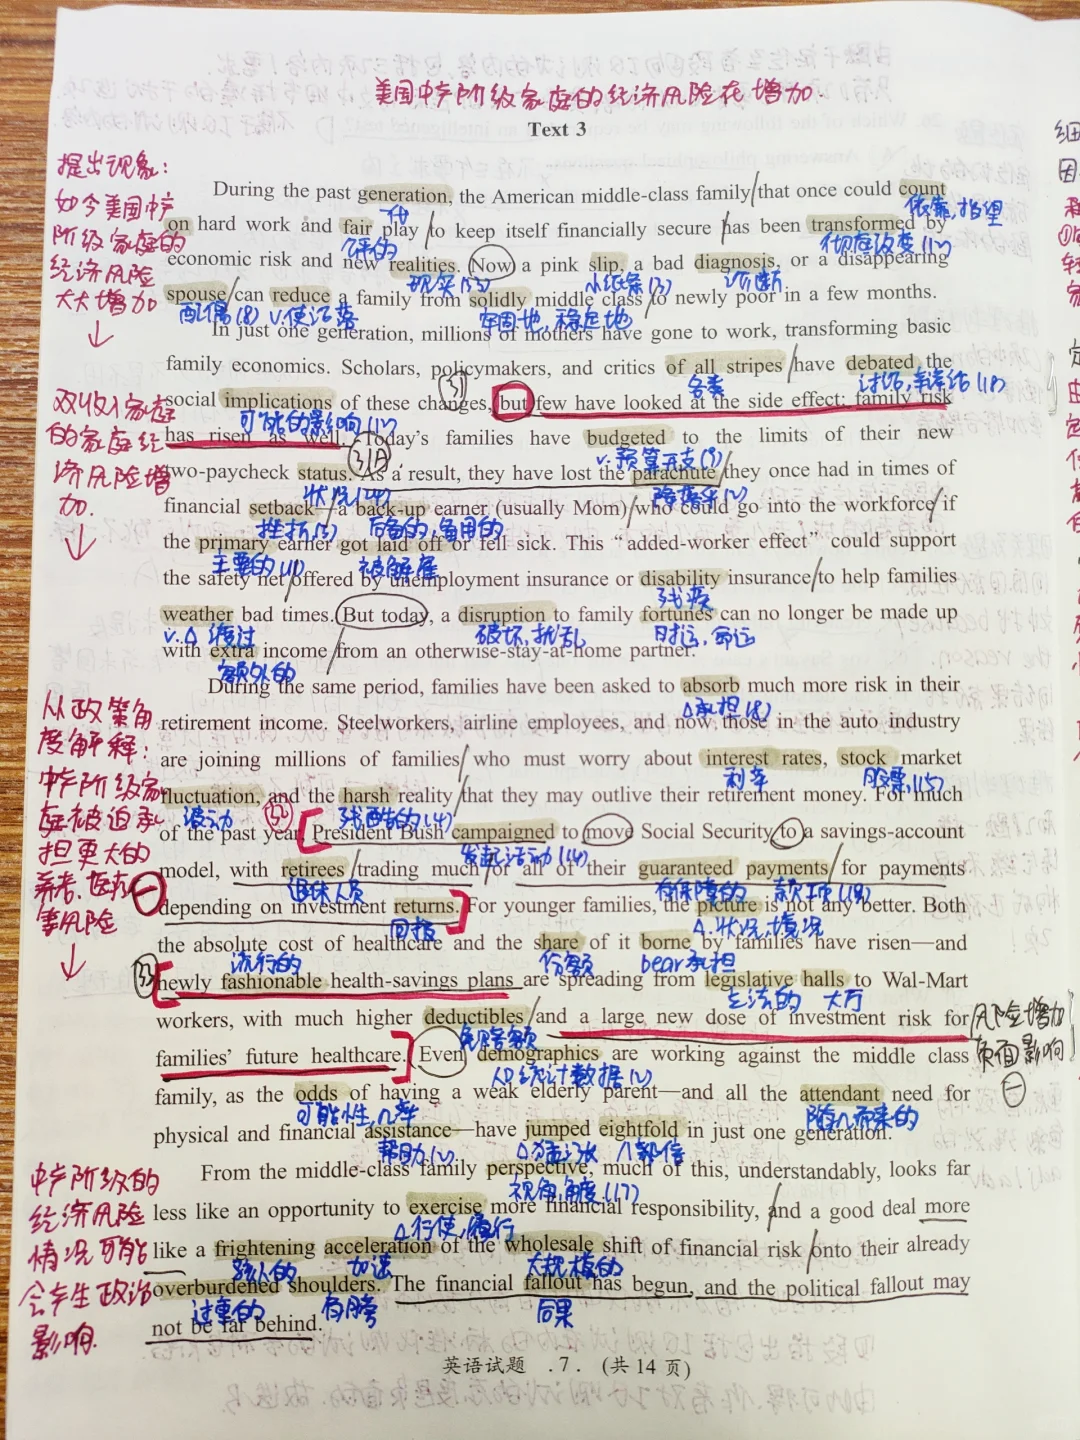 美国中产阶级家庭的经济风险在增加.
Text 3
提出现象:
如今美国中产
阶级家庭的
经济风险
大大增加
During the past generation, the American middle-class family/that once could count
代
依靠,指望
on hard work and fair play/to keep itself financially secure/has been transformed by
公平的
彻底改变(17)
economic risk and new realities. Now a pink slip, a bad diagnosis, or a disappearing
现实(13)
小纸条(3)
诊断
spouse/can reduce a family from solidly middle class/to newly poor in a few months.
配偶(8) v.使沦落
牢固地,稳定地
In just one generation, millions of mothers have gone to work, transforming basic
family economics. Scholars, policymakers, and critics of all stripes/have debated the
31
各类
讨论,辩论(18)
social implications of these changes, but few have looked at the side effect: family risk
可能的影响(17)
双收入家庭
的家庭经
济风险增
加.
has risen as well. Today's families have budgeted to the limits of their new
31A
v.预算开支(9)
two-paycheck status. As a result, they have lost the parachute/they once had in times of
financial setback—a back-up earner (usually Mom)/who could go into the workforce/if
挫折(5)
后备的,备用的
the primary earner got laid off or fell sick. This “added-worker effect” could support
主要的(11)
被解雇
the safety net/offered by unemployment insurance or disability insurance/to help families
残疾
weather bad times. But today, a disruption to family fortunes can no longer be made up
v.△ 经过
破坏,扰乱
时运,命运
with extra income/from an otherwise-stay-at-home partner.
额外的
During the same period, families have been asked to absorb much more risk in their
△承担(8)
从政策角
度解释:
中产阶级家
庭被迫承
担更大的
养老、医疗
事风险
retirement income. Steelworkers, airline employees, and now those in the auto industry
are joining millions of families/who must worry about interest rates, stock market
利率
股票(15)
fluctuation, and the harsh reality/that they may outlive their retirement money. For much
波动
残酷的(4)
of the past year, President Bush campaigned to move Social Security to a savings-account
发起活动(14)
model, with retirees/trading much/or all of their guaranteed payments/for payments
退休人员
有保障的
款项(18)
depending on investment returns. For younger families, the picture is not any better. Both
回报
△.状况,境况
the absolute cost of healthcare and the share of it borne by families have risen—and
流行的
份额
bear承担
33
newly fashionable health-savings plans are spreading from legislative halls to Wal-Mart
立法的 大厅
workers, with much higher deductibles/and a large new dose of investment risk for
免赔额
风险增加
负面影响
families' future healthcare. Even demographics are working against the middle class
人口统计数据(2)
family, as the odds of having a weak elderly parent—and all the attendant need for
可能性,几率
随之而来的
physical and financial assistance—have jumped eightfold in just one generation.
帮助(2)
From the middle-class family perspective, much of this, understandably, looks far
视角,角度(17)
中产阶级的
经济风险
情况可能
会产生政治
影响.
less like an opportunity to exercise more financial responsibility, and a good deal more
△行使,履行
like a frightening acceleration of the wholesale shift of financial risk/onto their already
骇人的
加速
大规模的
overburdened shoulders. The financial fallout has begun, and the political fallout may
过重的
肩膀
后果
not be far behind.
英语试题 . 7 . (共 14 页)